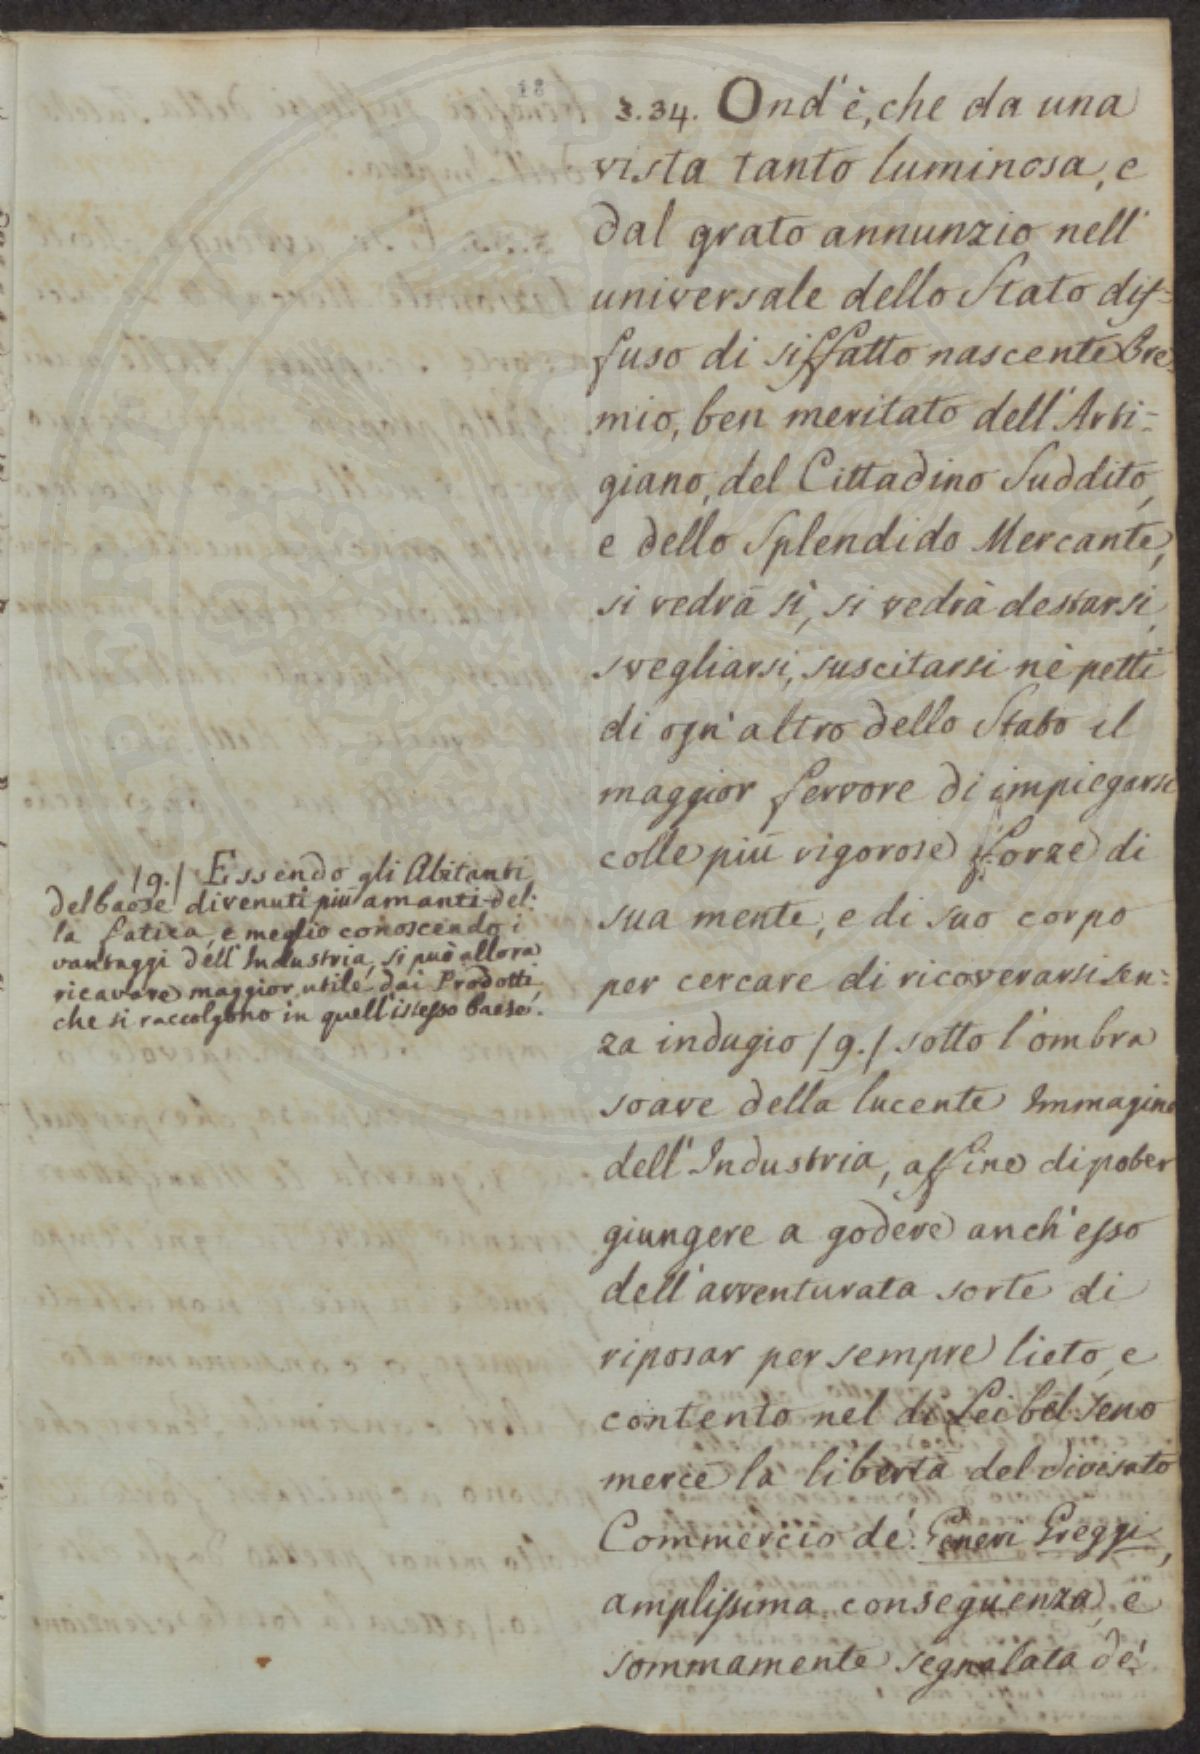 18
§.34. Ond'è, che da una
vista tanto luminosa, e
dal grato annunzio nell'
universale dello Stato dif=
fuso di siffatto nascente Pre=
mio, ben meritato dell'Arti=
giano, del Cittadino Suddito,
e dello Splendido Mercante,
si vedrà sì, si vedrà destarsi,
svegliarsi, suscitarsi nè petti
di ogn'altro dello Stato il
maggior fervore di impiegarsi
colle più vigorose forze di
sua mente, e di suo corpo
per cercare di ricoverarsi sen=
za indugio /9./ sotto l'ombra
soave della lucente Immagine
dell'Industria, affine di poter
giungere a godere anch'esso
dell'avventurata sorte di
riposar per sempre lieto, e
contento nel di Lei bel Seno
mercè la libertà del divisato
Commercio de' Generi Greggi,
amplissima conseguenza, e
sommamente segnalata de'
/9./ Essendo gli Abitanti
del Paese divenuti più amanti del=
la fatica, e meglio conoscendo i
vantaggi dell'Industria, si può allora
ricavare maggior utile dai Prodotti,
che si raccolgono in quell'istesso Paese.